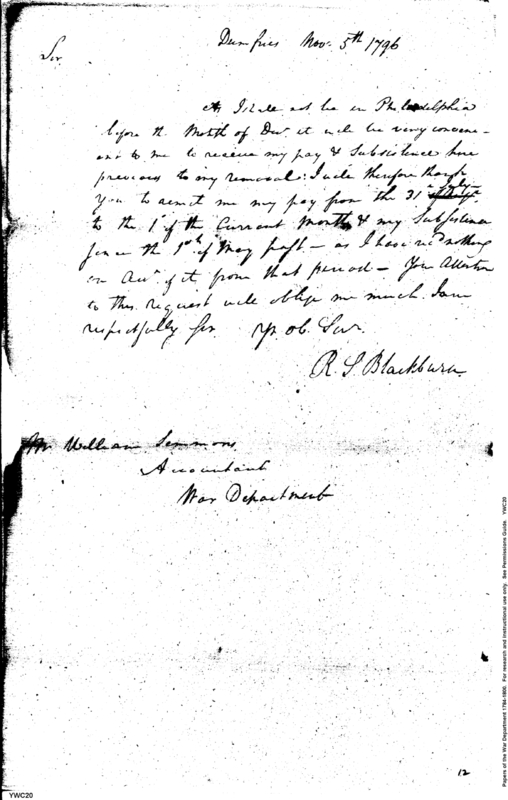 Dumfries Nov. 5th 1796
Sir
As I shall not be in Philadelphia
before the Month of Decr it will be very conveni-
ent to me to receive my pay & Subsistence here
previous to my removal: I will therefore thank
you to remit me my pay from the 31st July
to the 1st of the Current Month & my Subsistence
since the 1st of May past – as I have recd nothing
on Acct of it from that period – Your Attention
to this request will oblige me much. I am
respectfully Sir Yr. ob. Servt.
R. S. Blackburn
Mr William Simmons
Accountant
War Department
12
YWC20
Papers of the War Department 1784-1800. For research and instructional use only. See Permissions Guide. YWC20